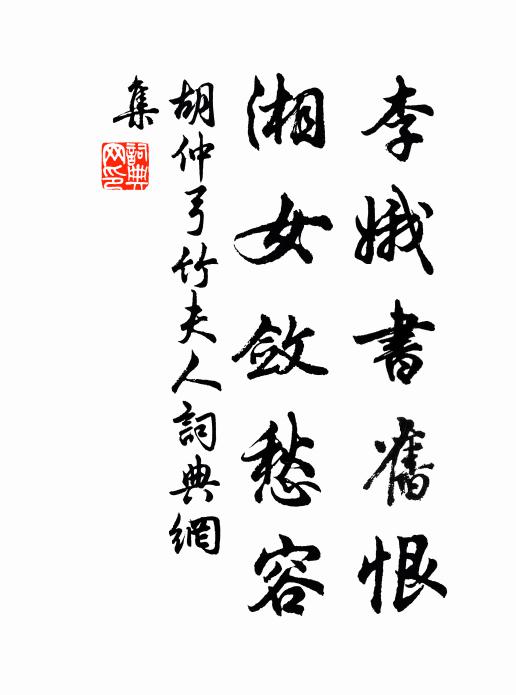 李娥書舊恨
湘女斂愁容
胡仲弓竹夫人詞典網
集
詞典網印